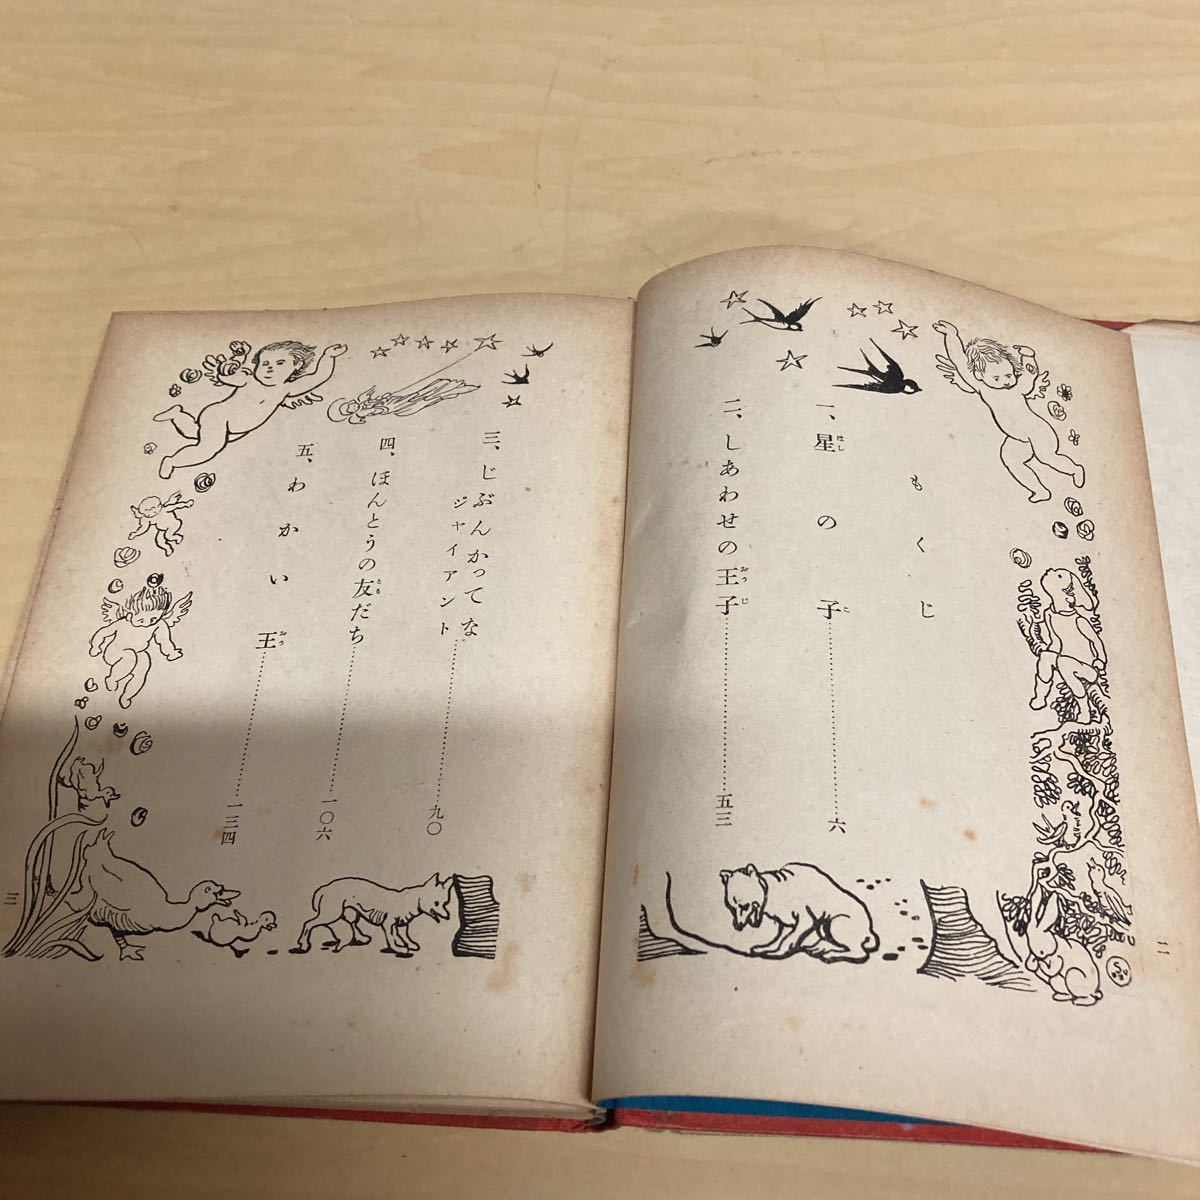 もくじ
一、星の子……六
ほし
こ
二、しあわせの王子……五三
おうじ
二
三、じぶんかってな
ジャイアント……九〇
四、ほんとうの友だち……一〇六
とも
五、わかい王……一三四
おう
三